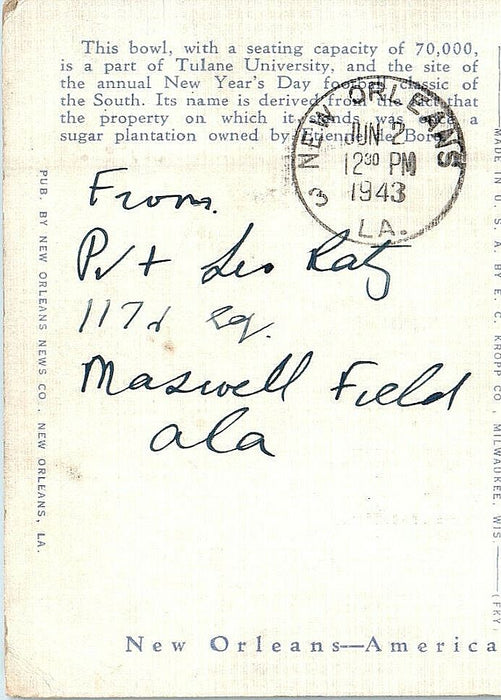 This bowl, with a seating capacity of 70,000,
is a part of Tulane University, and the site of
the annual New Year's Day football classic of
the South. Its name is derived from the fact that
the property on which it stands was once a
sugar plantation owned by Etienne de Bore.
NEW ORLEANS
JUN 2
12 30 PM
1943
LA.
3
From.
Pvt Leo Katz
117 Sq.
Maxwell Field
ala
PUB. BY NEW ORLEANS NEWS CO., NEW ORLEANS, LA.
MADE IN U. S. A. BY E. C. KROPP CO., MILWAUKEE, WIS.
New Orleans—America